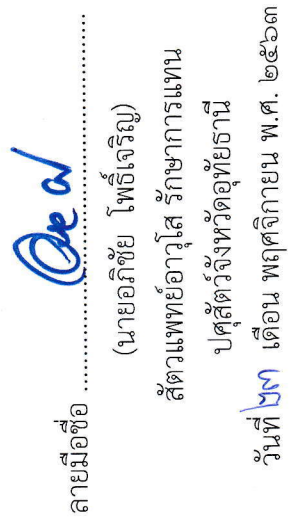 ลายมือชื่อ ........................................................
(นายอภิชัย โพธิ์เจริญ)
สัตวแพทย์อาวุโส รักษาการแทน
ปศุสัตว์จังหวัดอุทัยธานี
วันที่ ๒๓ เดือน พฤศจิกายน พ.ศ. ๒๕๖๓